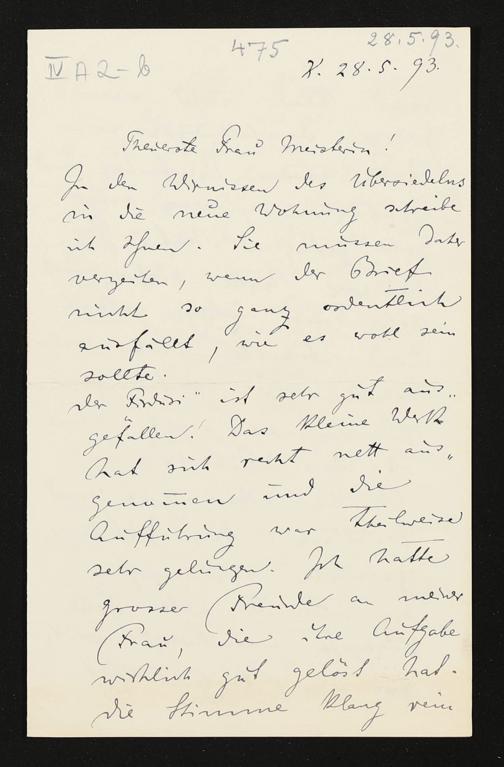 475
28.5.93.
IV A 2-b
K. 28.5.93.
Theuerste Frau Meisterin!
In den Wirnissen des Übersiedelns
in die neue Wohnung schreibe
ich Ihnen. Sie müssen daher
verzeihen, wenn der Brief
nicht so ganz ordentlich
ausfällt, wie es wohl sein
sollte.
Der „Firdusi" ist sehr gut aus„
gefallen! Das kleine Werk
hat sich recht nett aus„
genom̅en und die
Aufführung war theilweise
sehr gelungen. Ich hatte
grosser Freude an meiner
Frau, die ihre Aufgabe
wirklich gut gelöst hat.
Die Stimme klang rein